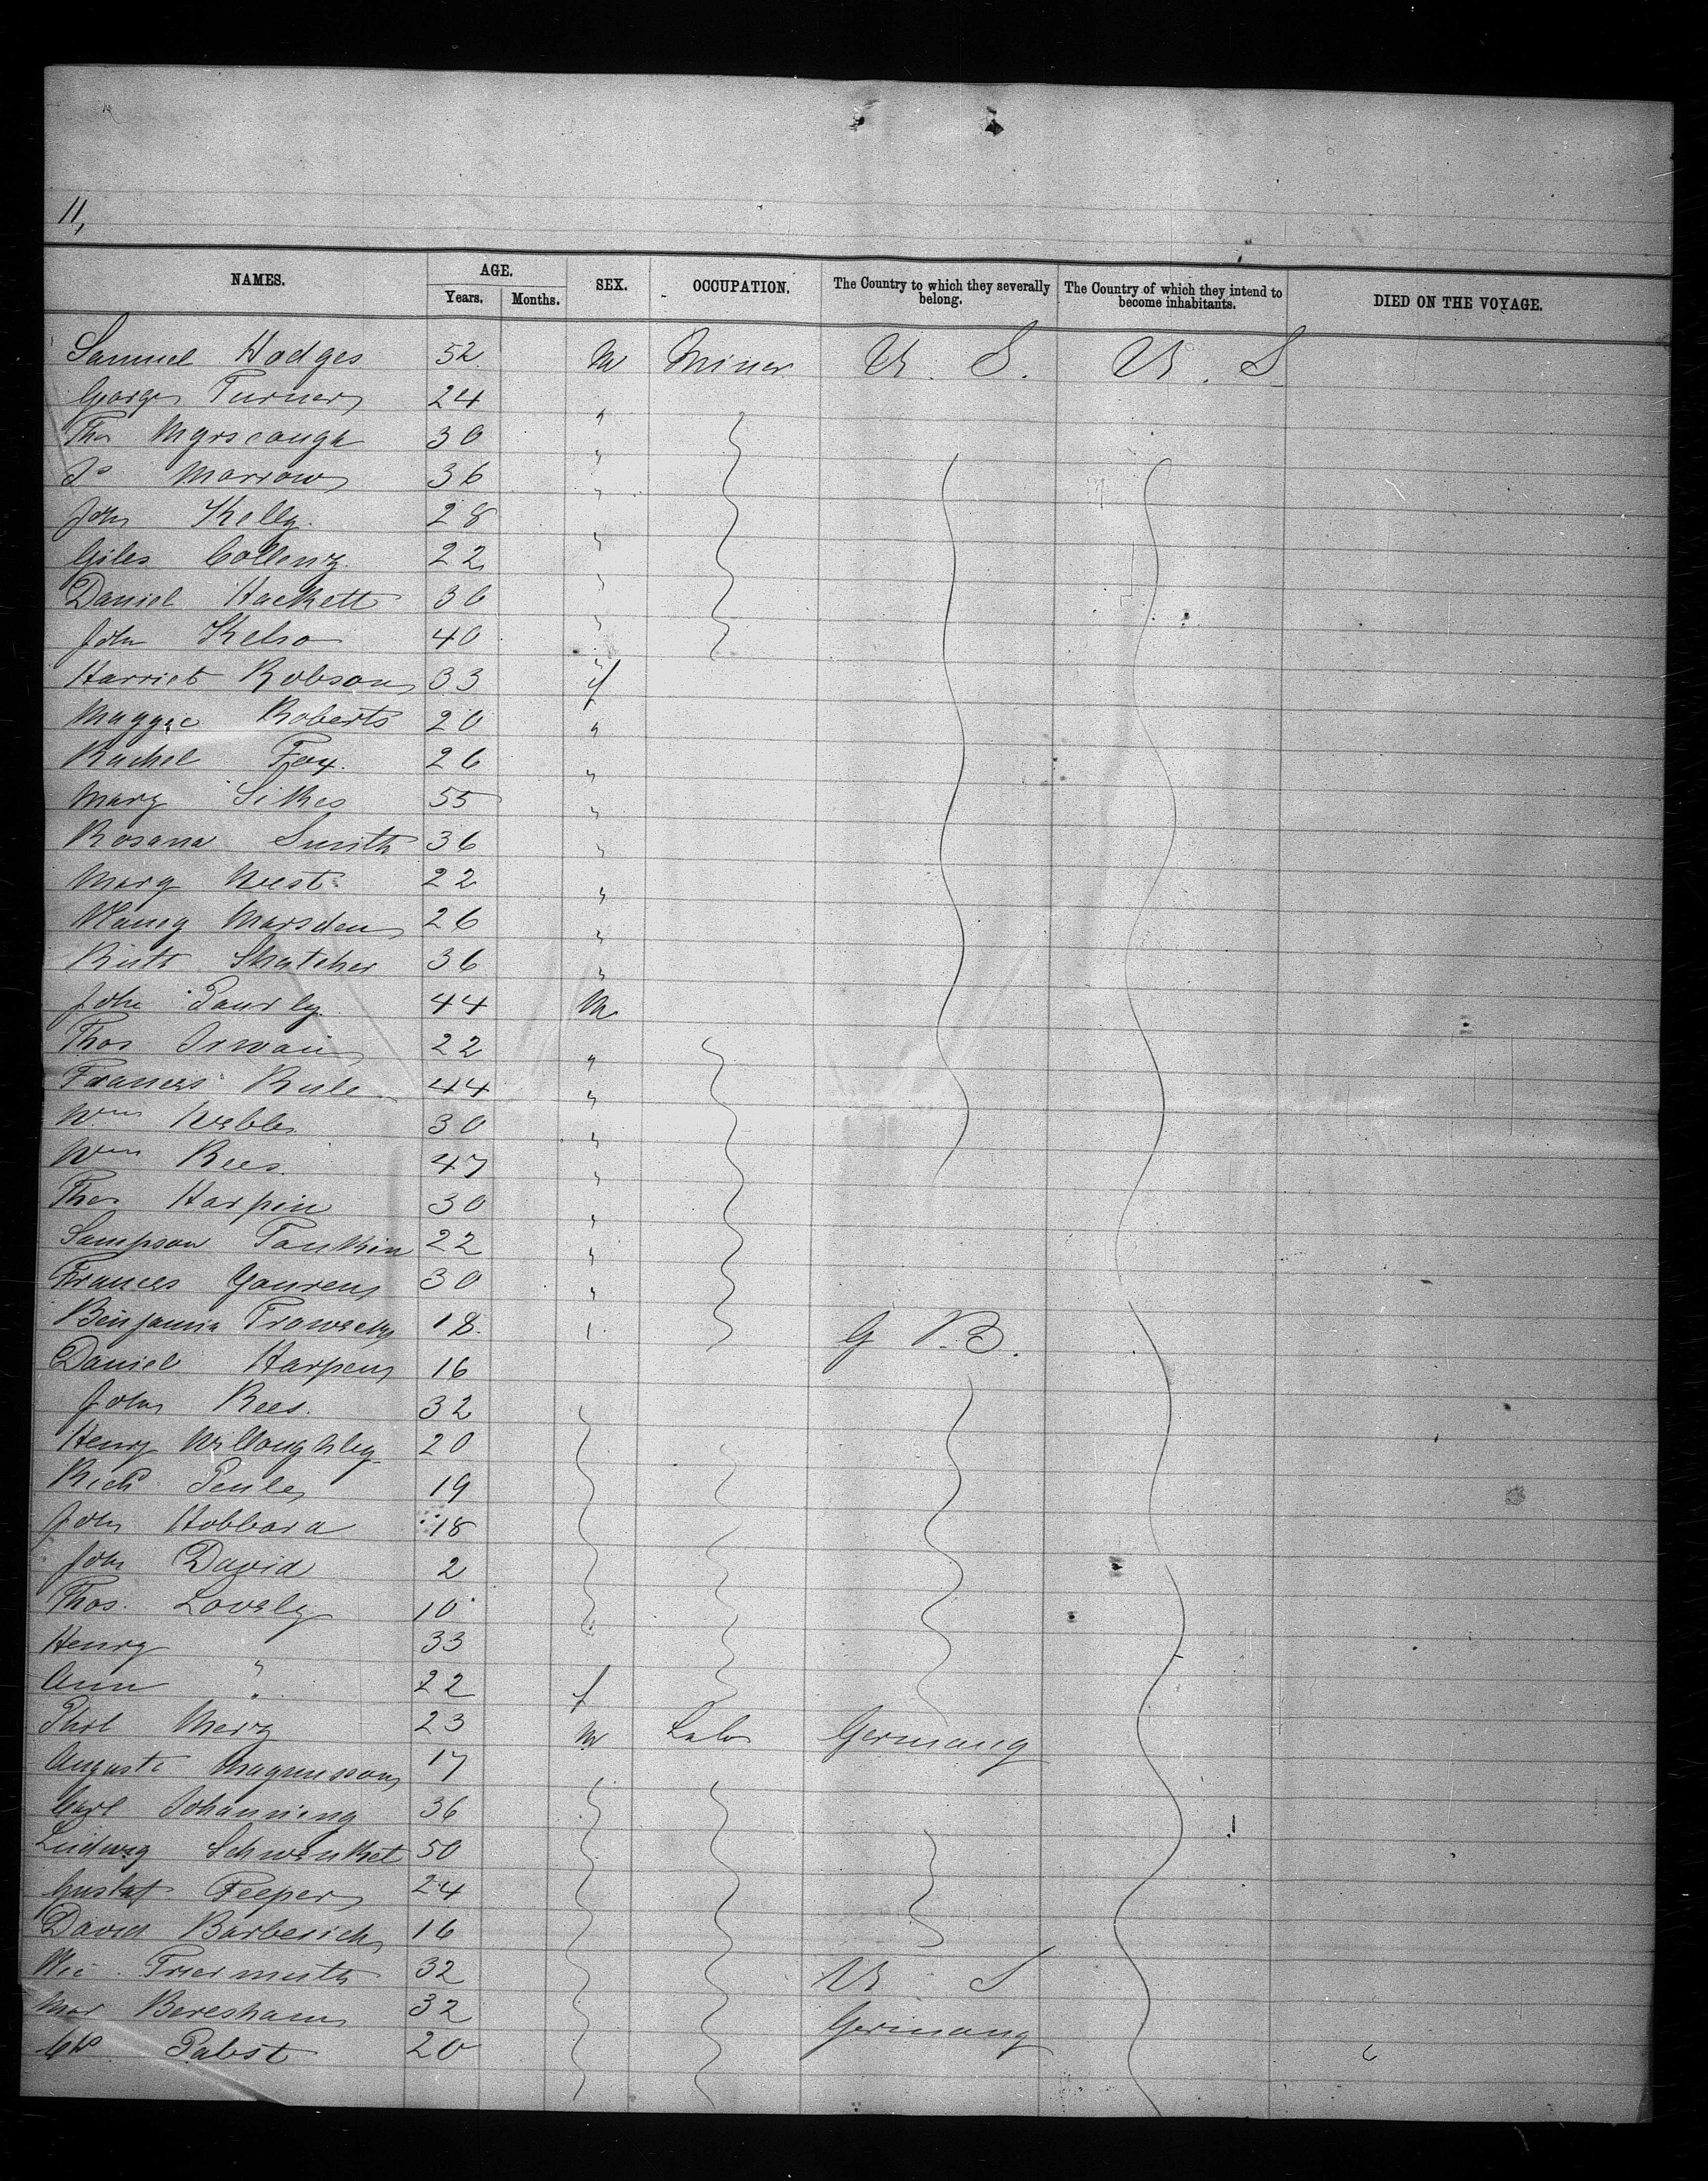 11,
NAMES. AGE. SEX. OCCUPATION. The Country to which they severally belong. The Country of which they intend to become inhabitants. DIED ON THE VOYAGE.
Years. Months.
Samuel Hodges 52 M Miner U. S. U. S
George Turner 24 "
Thos Myrscough 30 "
Js Marrow 36 "
John Kelly 28 "
Giles Colleny 22 "
Daniel Hackett 30 "
John Kelso 40 "
Harriet Robson 33 f
Maggie Roberts 20 "
Rachel Fox 26 "
Mary Sikes 55 "
Rosana Smith 36 "
Mary West 22 "
Nancy Marsden 26 "
Ruth Shatcher 36 "
John Pourly 44 M
Thos 22 "
Frances Rule 44 "
Wm Webbe 30 "
Wm Rees 47 "
Thos Harpin 30 "
Sampson Tonkin 22 "
Frances Gouren 30 "
Benjamin 18 " G B.
Daniel Harpen 16
John Rees 32
Henry Willoughby 20
Richd Penle 19
John Hobbard 18
John David 2
Thos. Lovely 10
Henry " 33
Ann " 22 f
Phil Merz 23 M Labr Germany
August Magnusson 17
Carl Johanning 36
Ludwig Schwenket 50
Gustaf Feeper 24
David Barberich 16
Nic Friermuth 32 U S
Mar Beresham 32 Germany
Chs Pabst 20